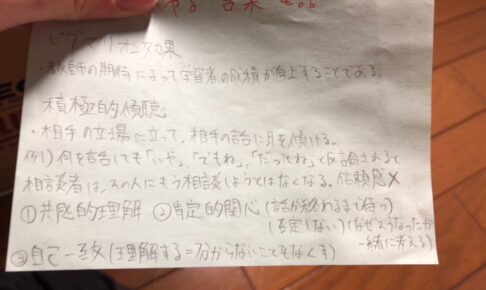 やる 古来
ピグマリオン効果
・教師の期待によって学習者の成績が向上することである。
積極的傾聴
・相手の立場に立って、相手の話に耳を傾ける。
例)何を言っても「いや。」「でもね」「だってね」と反論されると
相談者は、その人にもう相談しようとはなくなる。信頼感×
①共感的理解 ②肯定的関心(話が終わるまで待つ)
(否定しない)(なぜそうなったか
一緒に考える)
③自己一致(理解する=分からないことをなくす)